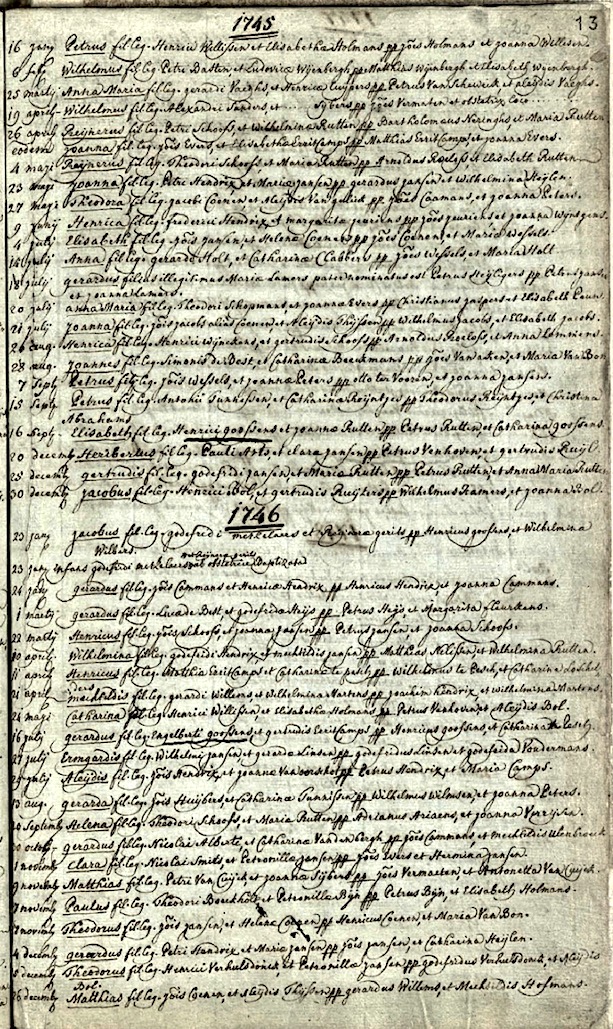 1745
13
16 janij Petrus fil: leg. Henrici Willissen, et Elisabethæ Holmans pp jöis Holmans et joanna Willesen.
6 feb Wilhelmus fil: leg. Petri Batten, et Ludovicæ Wijenbergh pp Matthias Wijnbergh et Elisabeth Wijenbergh.
25 martij Anna Maria fil: leg. gerardi Vaeghs, et Henricæ Cuijpers pp Petrus Van Scheiwick, et aleijdis Vaeghs.
19 april Wilhelmus fil: leg. Alexandri Sanders, et ... Sijbers pp jöis Vermaten et obstetrix loco ...
26 april Reijnerus fil: leg. Petri Schoofs, et Wilhelmina Rutten pp Bartholomæus Neringhs et Maria Rutten
eodem joanna fil: leg. jöis Evers, et Elisabetha Erritcamps pp Matthias Erritcamps, et joanna Evers.
4 maji Reijnerius fil: leg. Theodori Schoofs, et Mariæ Rutten pp Arnoldus Roelofs et Elisabeth Rutten
23 maji joanna fil: leg. Petri Hendrix, et Mariæ jansen pp gerardus jansen, et Wilhelmina Heijlen.
27 maji Theodora fil: leg. jacobi Coenen, et Aleijdis Van gulick pp jöis Caamans, et joanna Peters.
9 junij Henrica fil: leg. frederici Hendrix, et margarita geuriens pp jöis jeuriens, et joanna Wijnsgens.
4 julij Elisabeth fil: leg. jöis jansen, et Helenæ Coenen pp jöis Coenen, et Maria Wessels.
14 julij Anna fil: leg. gerardi Holt, et Catharinæ Clabbers pp joes Wessels, et Maria Holt
18 julij gerardus filius illegitimus Mariæ Lamers pater nominatus est Petrus Heijligers pp Petrus jansen
et joanna Lamers.
20 julij anna Maria fil: leg. Theodori Schopmans, et joannæ Evers pp Christianus jaspers, et Elisabeth
21 julij joanna fil: leg. jöis jacobs alias Coenen, et Aleijdis Thijssen pp Wilhelmus jacobs, et Elisabeth jacobs.
26 aug. Henrica fil: leg. Henrici Wijnekens, et gertrudis Schoofs pp Arnoldus Roelofs, et Anna
28 aug. joannes fil: leg. Simonis de Best, et Catharinæ Beeckmans pp jöis Van aken, et Maria Van Bon
7 Septb Petrus fil: leg. jöis Wessels, et joannæ Peters pp otto ter Vooren, et joanna jansen.
15 Septb Petrus fil: leg. Antonii Tunnissen, et Catharina Roijntjes pp Theodorus Reijntjes, et Christina
Abrahams
16 Septb. Elisabeth fil: leg. Henrici goossens et joannæ Rutten pp Petrus Rutten, et Catharina goossens.
20 decemb Heribertus fil: leg. Pauli Arts, et Clara jansen pp Petrus Venhoven, et gertrudis Ruijl.
25 decemb gertrudis fil: leg. godefridi jansen, et Mariæ Rutten pp Petrus Rutten, et Anna Maria Rutten
30 decemb jacobus fil: leg. Henrici Bol, et gertrudis Ruijters pp Wilhelmus Kamers, et joanna Bol.
1746
23 janij jacobus fil: leg. godefridi metzelaers et Reijneræ gerits pp Henricus goossens, et Wilhelmina
Willers.
23 janij infans godefridi metzelaers et Reijneræ gerits ab obstetrice Baptizata
24 janij gerardus fil: leg. jöis Cammans et Henricæ Hendrix pp Henricus Hendrix, et joanna Cammans.
1 martij gerardus fil: leg. Lucæ de Best et godefrida Heijs pp Petrus Heijs, et Margarita fleurkens.
22 martij Henricus fil: leg. jöis Schoofs, et joannæ jansen pp Petrus jansen, et joanna Schoofs.
10 april. Wilhelmina fil: leg. godefridi Hendrix, et mechtildis jansen pp Matthias Nelissen, et Wilhelmina Rutten.
11 april Henricus fil: leg. Matthiæ Erritcamps, et Catharinæ te pesch pp Wilhelmus te Pesch, et Catharina
ders
21 april mechtildis fil: leg. gerardi Willems, et Wilhelmina Martens pp joachim hendrix, et wilhelmina Martens.
21 maji Catharina fil: leg. Henrici Willissen, et Elisabethæ Holmans pp Petrus Venhoven, et Aleijdis Bol.
16 julij gerardus fil: leg. Engelberti goossens, et gertrudis Erritcamps pp Henricus goossens, et Catharina te Pesch.
27 julij Ermgardis fil: leg. Wilhelmi jansen, et gerardæ Linsen pp godefridus Linsen, et godefrida Vondermans.
29 julij Aleijdis fil: leg. jöis Hendrix, et joanna Van oorschot pp Petrus Hendrix, et Maria Camps.
13 aug. gerarda fil: leg. jöis Huijbers, et Catharinæ Tunnissen pp Wilhelmus Wilmsen, et joanna Peters.
Septemb Helena fil: leg. Theodori Schoofs, et Maria Rutten pp Adrianus Ariaens, et joanna
octob gerarius fil: leg. Nicolai Alberts, et Catharinæ Vandenbergh pp jöis Cammans, et mechtildis Ulenbroeck
1 novemb Clara fil: leg. Nicolai Smits, et Petronilla jansen pp jöis Evers et Hermina jansen.
9 novemb Matthias fil: leg. Petri Van Cuijck et joannæ Sijbers pp jöis Vermaeten, et Antonetta Van Cuijck.
7 novemb Paulus fil: leg. Theodori Boeckholt, et Petronilla Bijn pp Petrus Bijn, et Elisabeth Holmans.
novemb Theodorus fil: leg. jöis jansen, et Helenæ Coenen pp Henricus Coenen, et Maria Van Bon.
4 decemb gerardus fil: leg. Petri Hendrix, et Maria jansen pp jöis jansen, et Catharina Heijlen.
5 decemb Theodorus fil: leg. Henrici Verhulsdonck, et Petronillæ jansen pp godefridus Verhulsdonck, et Aleijdis
Bol.
26 decemb Matthias fil: leg. jöis Coenen, et Aleijdis Thijssen pp gerardus Willems, et Mechtildis Hofmans.